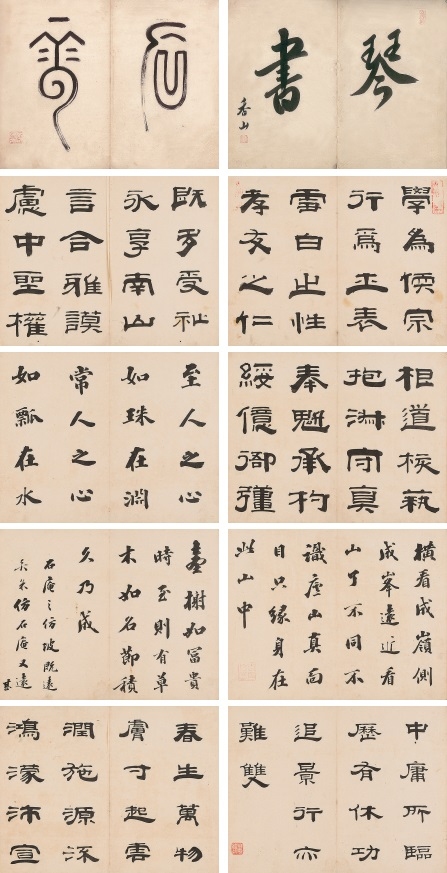 琴
書
香山
學為偄宗
行爲士表
白之性
孝友之仁
既多受祉
永享南山
言合雅謨
慮中聖權
相道校藝
抱淑守真
奉魁承杓
綏億衙彊
至人之心
如珠在淵
常人之心
如瓢在水
橫看成嶺側
成峯遠近看
山了不同不
識廬山真面
目只緣身在
此山中
臺榭如富貴
時至則有草
木如名節積
久乃成
石庵之仿坡既遠
仿石庵又遠甚
中庸所臨
歷有休功
追景行亦
難雙
春生萬物
膚寸起雲
潤施源流
鴻濛沛宣